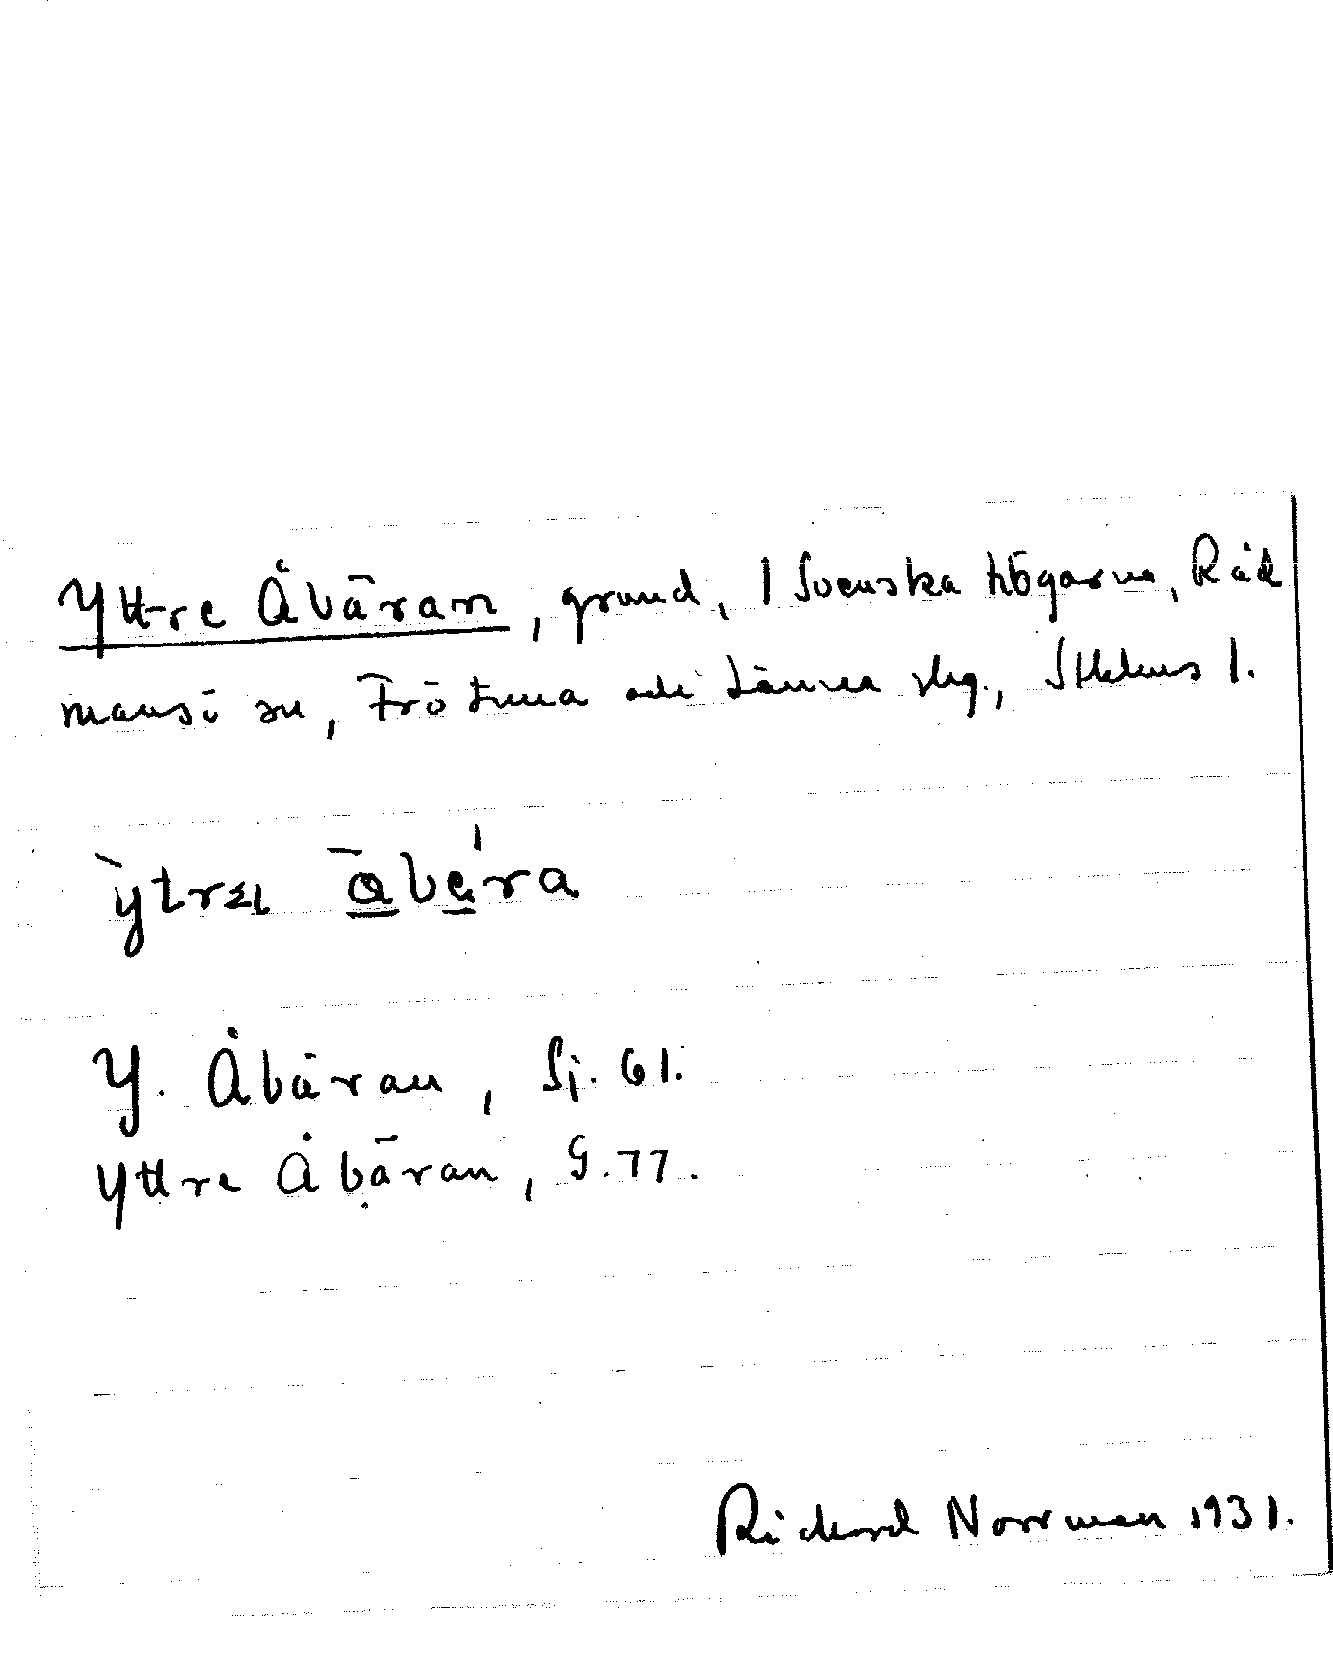 Yttre Åbäran, grund, i Svenska högarna, Råd
mansö sn, Frötuna och Länna skg., Sthlms l.
ỳtrɛ åbæ̍ra
Y. Åbäran, Sj. 61.
Yttre Åbäran, G. 77.
Rickard Norrman 1931.